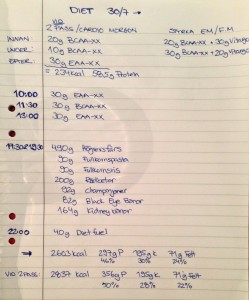 DIET 30/7 →
VID
2 PASS/CARDIO MORGON STYRKA EM/F.M
INNAN: 20g BCAA-XX 20g BCAA-XX + 30g Vitargo
UNDER: 10g BCAA-XX 30g EAA-XX + 20g Vitargo
EFTER: 30g EAA-XX
= 234 kcal 58,5g Protein
10:00 30g EAA-XX
11:30 30g BCAA-XX
13:00 30g EAA-XX
490g Högrevsfärs
90g Fullkornspasta
90g Fullkornsris
200g Rödbetor
92g Champinjoner
82g Black Eye Bönor
164g Kidney bönor
22:00 40g Diet fuel
→ 2603 kcal 297g P 195g k 71g Fett
46% 30% 24%
VID 2 PASS: 2837 kcal 356g P 195g k 71g Fett
50% 28% 22%